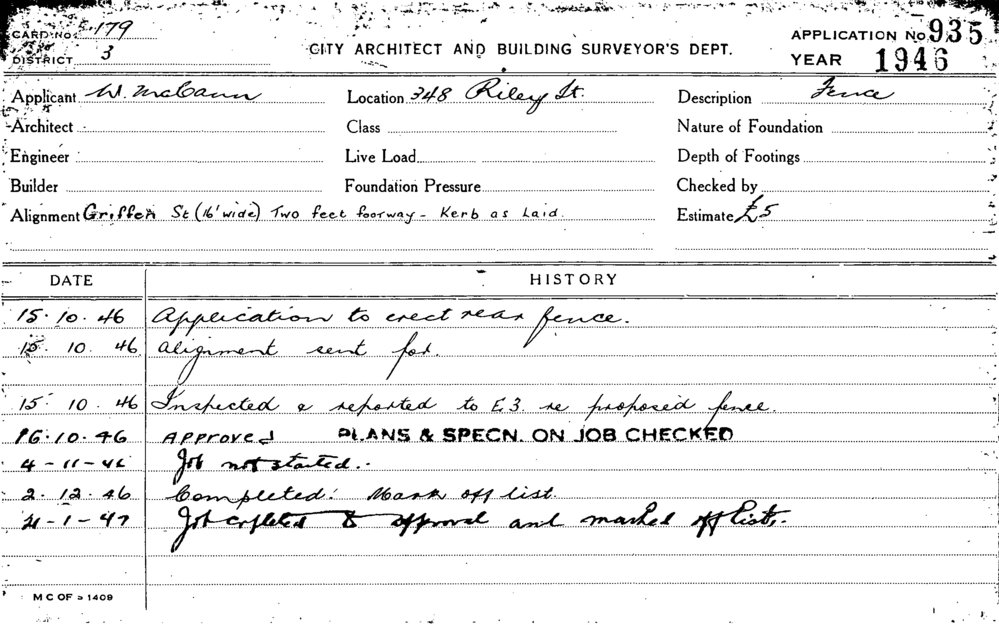 CARD No. 5179
APPLICATION No. 935
DISTRICT 3
CITY ARCHITECT AND BUILDING SURVEYOR'S DEPT.
YEAR 1946
Applicant W. McCann Location 348 Riley St. Description Fence
Architect Class Nature of Foundation
Engineer Live Load Depth of Footings
Builder Foundation Pressure Checked by
Alignment Griffen St (16' wide) Two feet footway - Kerb as Laid. Estimate £5
DATE HISTORY
15.10.46 Application to erect rear fence.
15.10.46 Alignment sent for.
15.10.46 Inspected & reported to E.3. re proposed fence.
16.10.46 Approved PLANS & SPECN. ON JOB CHECKED
4-11-46 Job not started.
2.12.46 Completed. Mark off list.
21-1-47 Job copleted to approval and marked off list.
M C OF S 1409